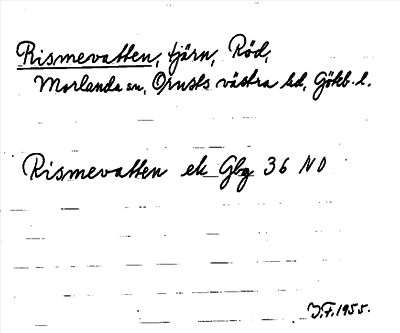 Rismevatten, tjärn, Röd,
Morlanda sn, Orusts västra hd, Götb. l.
Rismevatten ek Gbg 36 NO
J.F. 1955.